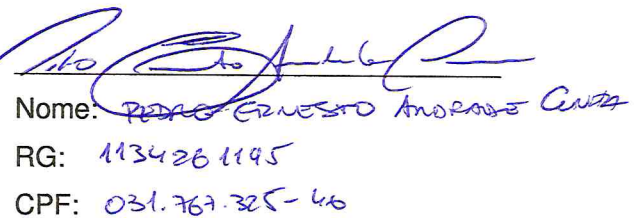 Nome: PEDRO ERNESTO ANDRADE
RG: 1134261195
CPF: 031.767.325-46